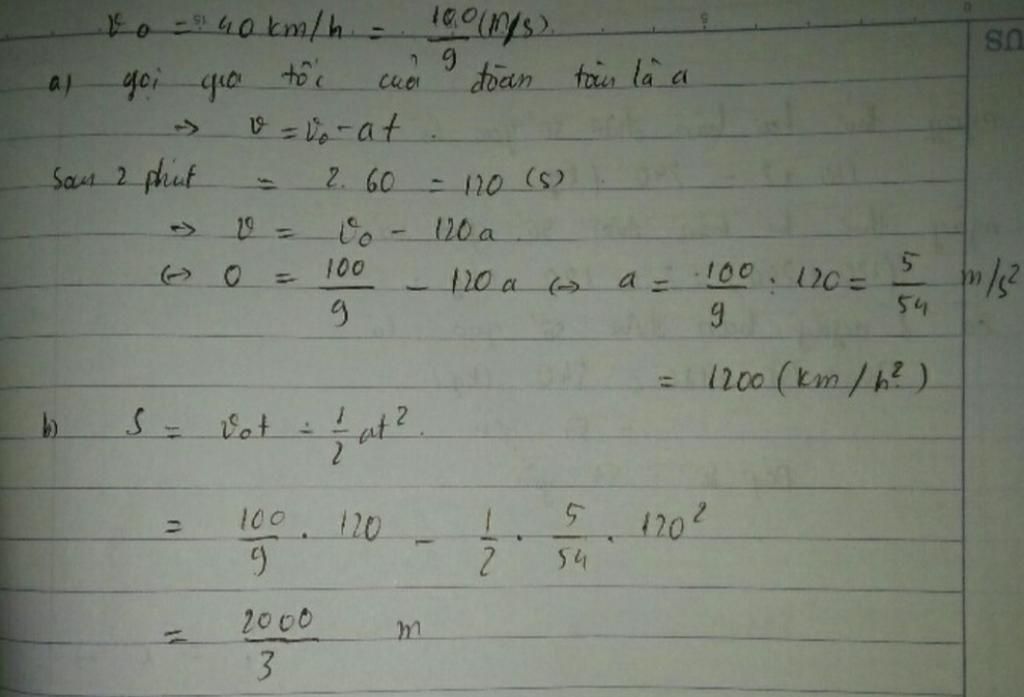 v₀ = 40 km/h = 100/9 (m/s)
a) gọi gia tốc của đoàn tàu là a
→ v = v₀ - at.
Sau 2 phút = 2.60 = 120 (s)
→ v = v₀ - 120a
↔ 0 = 100/9 - 120a ↔ a = 100/9 : 120 = 5/54 m/s²
= 1200 (km/h²)
b) S = v₀t - 1/2 at².
= 100/9 . 120 - 1/2 . 5/54 . 120²
= 2000/3 m